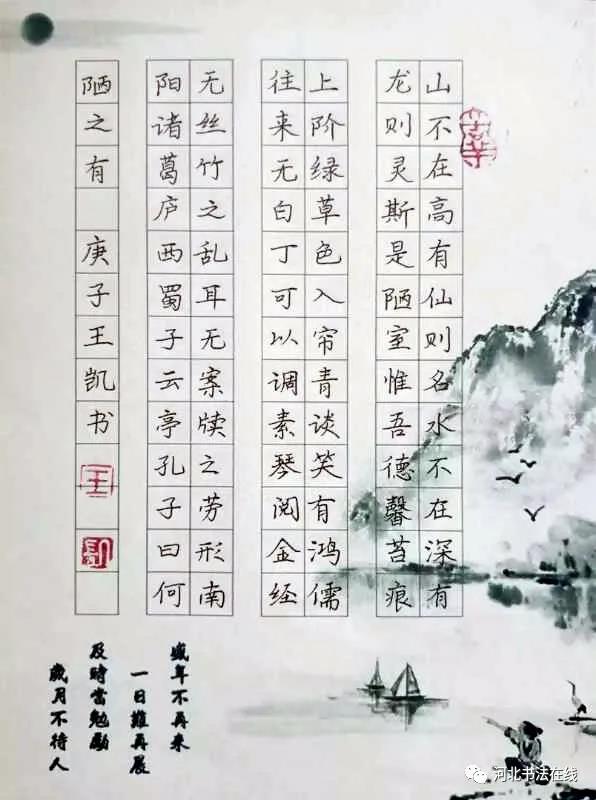 山不在高有仙则名水不在深有
龙则灵斯是陋室惟吾德馨苔痕
上阶绿草色入帘青谈笑有鸿儒
往来无白丁可以调素琴阅金经
无丝竹之乱耳无案牍之劳形南
阳诸葛庐西蜀子云亭孔子曰何
陋之有 庚子王凯书
王
盛年不再来
一日難再晨
及時當勉勵
歲月不待人
河北书法在线